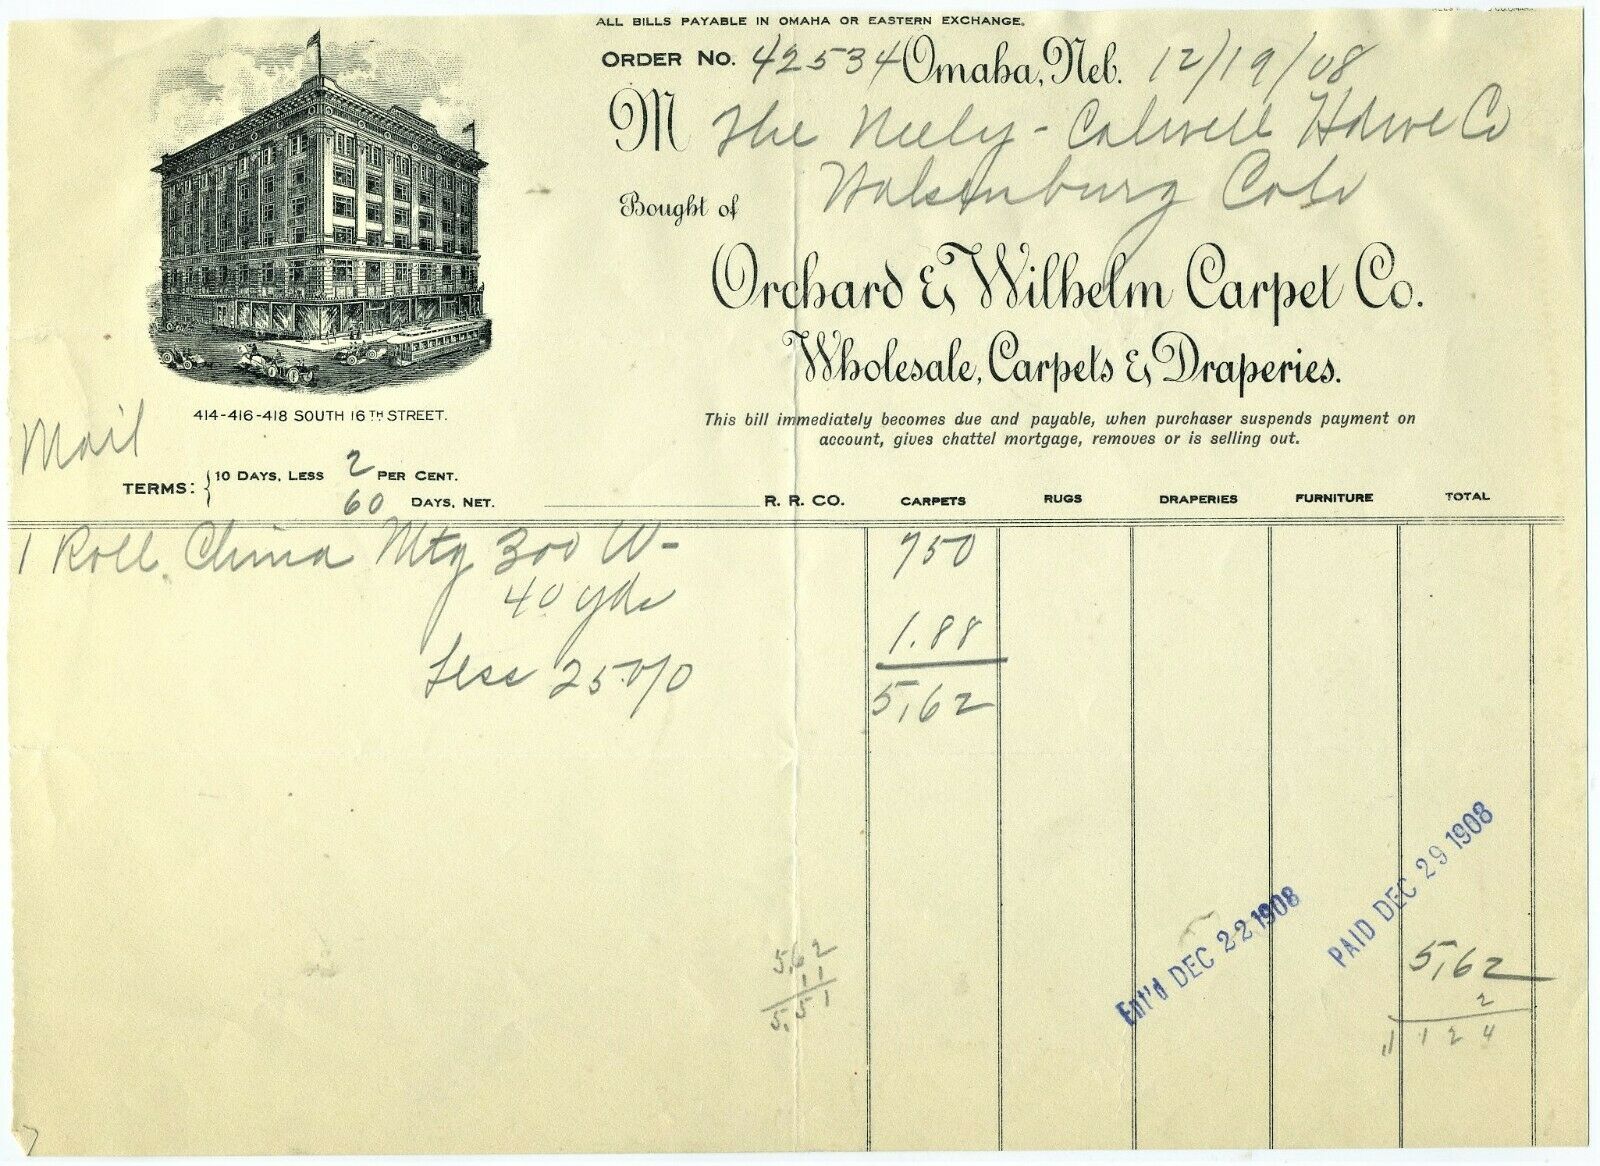 ALL BILLS PAYABLE IN OMAHA OR EASTERN EXCHANGE.
ORDER NO. 42534 Omaha, Neb. 12/19/08
M The Neely - Calwell Hdwe Co
Walsenburg Colo
Bought of
Orchard & Wilhelm Carpet Co.
Wholesale, Carpets & Draperies.
414-416-418 SOUTH 16TH STREET.
This bill immediately becomes due and payable, when purchaser suspends payment on
account, gives chattel mortgage, removes or is selling out.
Mail
TERMS: 10 DAYS, LESS 2 PER CENT.
60 DAYS, NET.
R. R. CO. CARPETS RUGS DRAPERIES FURNITURE TOTAL
1 Roll China Mtg 300 W- 750
40 yds
1.88
Less 25 0/0
5,62
Ent'd DEC 22 1908
PAID DEC 29 1908
5,62
11
5.51
5,62
2
11 1 2 4